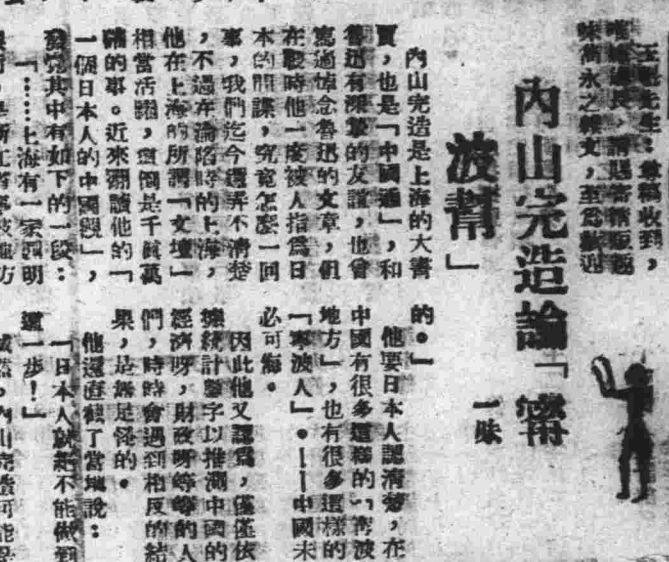 先生:尊稿收到,
味雋永之雜文,至爲歡迎
內山完造論「甯
波幫」
一味
內山完造是上海的大書
賈,也是「中國通」,和
魯迅有深摯的友誼,也曾
寫過悼念魯迅的文章,但
在戰時他一度被人指爲日
本的間諜,究竟怎麼一回
事,我們迄今還弄不清楚
,不過在淪陷時的上海,
他在上海的所謂「文壇」
相當活躍,這倒是千眞萬
確的事。近來翻讀他的「
一個日本人的中國觀」,
發覺其中有如下的一段:
「……上海有一家 明
的。」
他要日本人認清楚,在
中國有很多這樣的「甯波
地方」,也有很多這樣的
「甯波人」。——中國未
必可侮。
因此他又認爲,僅僅依
據統計數字以推測中國的
經濟呀,財政呀等等的人
們,時時會遇到相反的結
果,是無足怪的。
他還直截了當地說:
「日本人就絕不能做到
這一步!」
內山完造可能是